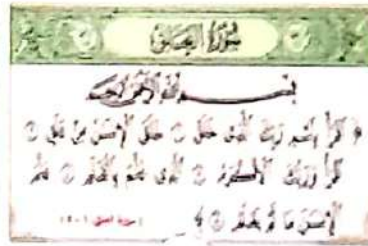 سورة العلق
بسم الله الرحمن الرحيم
﴿ اقرأ باسم ربك الذي خلق ۝ خلق الإنسان من علق ۝
اقرأ وربك الأكرم ۝ الذي علم بالقلم ۝ علم
الإنسان ما لم يعلم ۝ ﴾